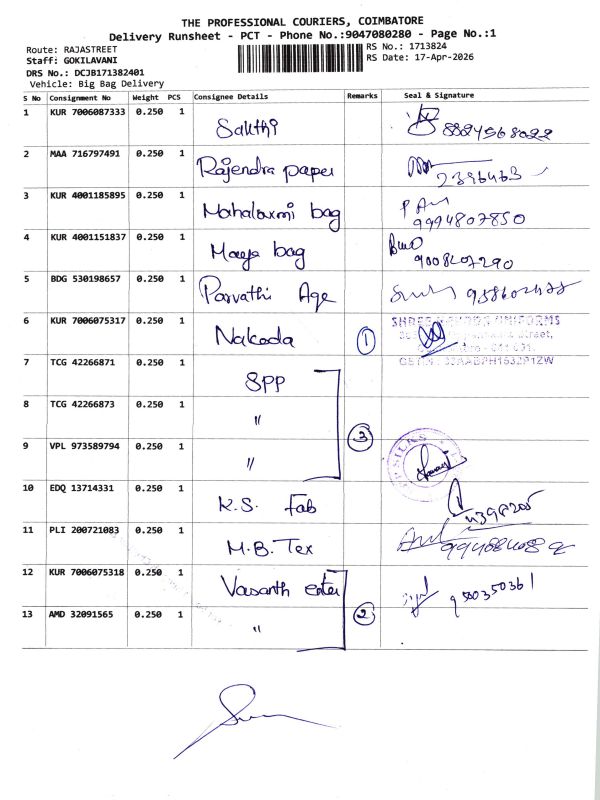 THE PROFESSIONAL COURIERS, COIMBATORE
Delivery Runsheet - PCT - Phone No.:9047080280 - Page No.:1
Route: RAJASTREET
RS No.: 1713824
Staff: GOKILAVANI
RS Date: 17-Apr-2026
DRS No.: DCJB171382401
Vehicle: Big Bag Delivery
S No Consignment No Weight PCS Consignee Details Remarks Seal & Signature
1 KUR 7006087333 0.250 1 Sakthi
2 MAA 716797491 0.250 1 Rajendra paper
3 KUR 4001185895 0.250 1 Mahalaxmi bag 9994807850
4 KUR 4001151837 0.250 1 bag 9008207290
5 BDG 530198657 0.250 1 Parvathi Age
6 KUR 7006075317 0.250 1 Nakoda 1 UNIFORMS
7 TCG 42266871 0.250 1 SPP
8 TCG 42266873 0.250 1 "
3
9 VPL 973589794 0.250 1 "
10 EDQ 13714331 0.250 1 K.S. Fab
11 PLI 200721083 0.250 1 M.B. Tex
12 KUR 7006075318 0.250 1 Vasanth 9500350361
2
13 AMD 32091565 0.250 1 "